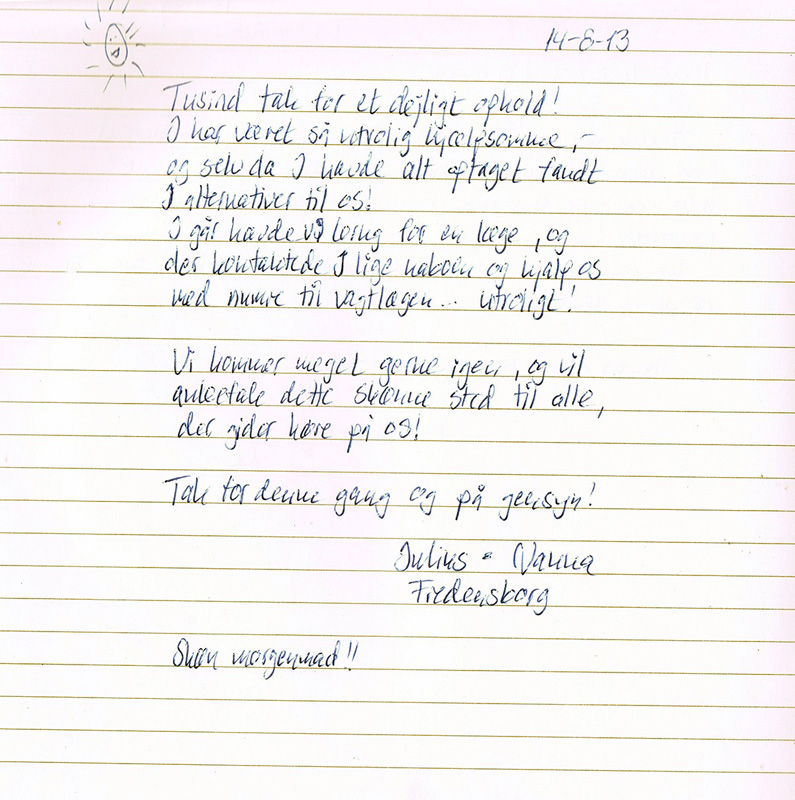 14-8-13
Tusind tak for et dejligt ophold!
I har været så utrolig hjælpsomme,-
og selv da I havde alt optaget fandt
I alternativer til os!
I går havde vi brug for en læge, og
der kontaktede I lige naboen og hjalp os
med numre til vagtlægen... utroligt!
Vi kommer meget gerne igen, og vil
anbefale dette skønne sted til alle,
der gider høre på os!
Tak for denne gang og på gensyn!
Julius & Nanna
Fredensborg
Skøn morgenmad!!